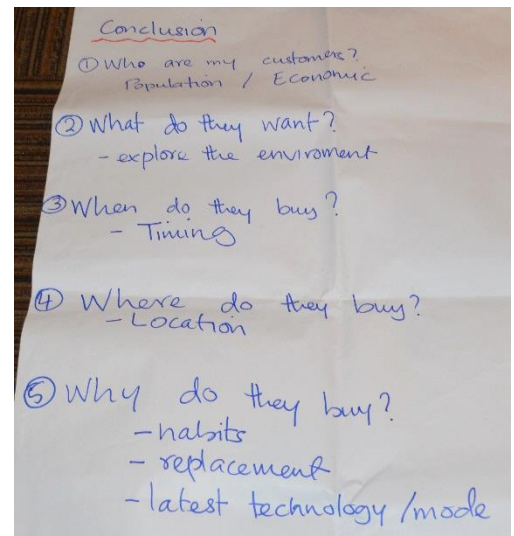 Conclusion
① Who are my customers?
Population / Economic
② What do they want?
- explore the enviroment
③ When do they buy?
- Timing
④ Where do they buy?
- Location
⑤ Why do they buy?
- habits
- replacement
- latest technology / mode